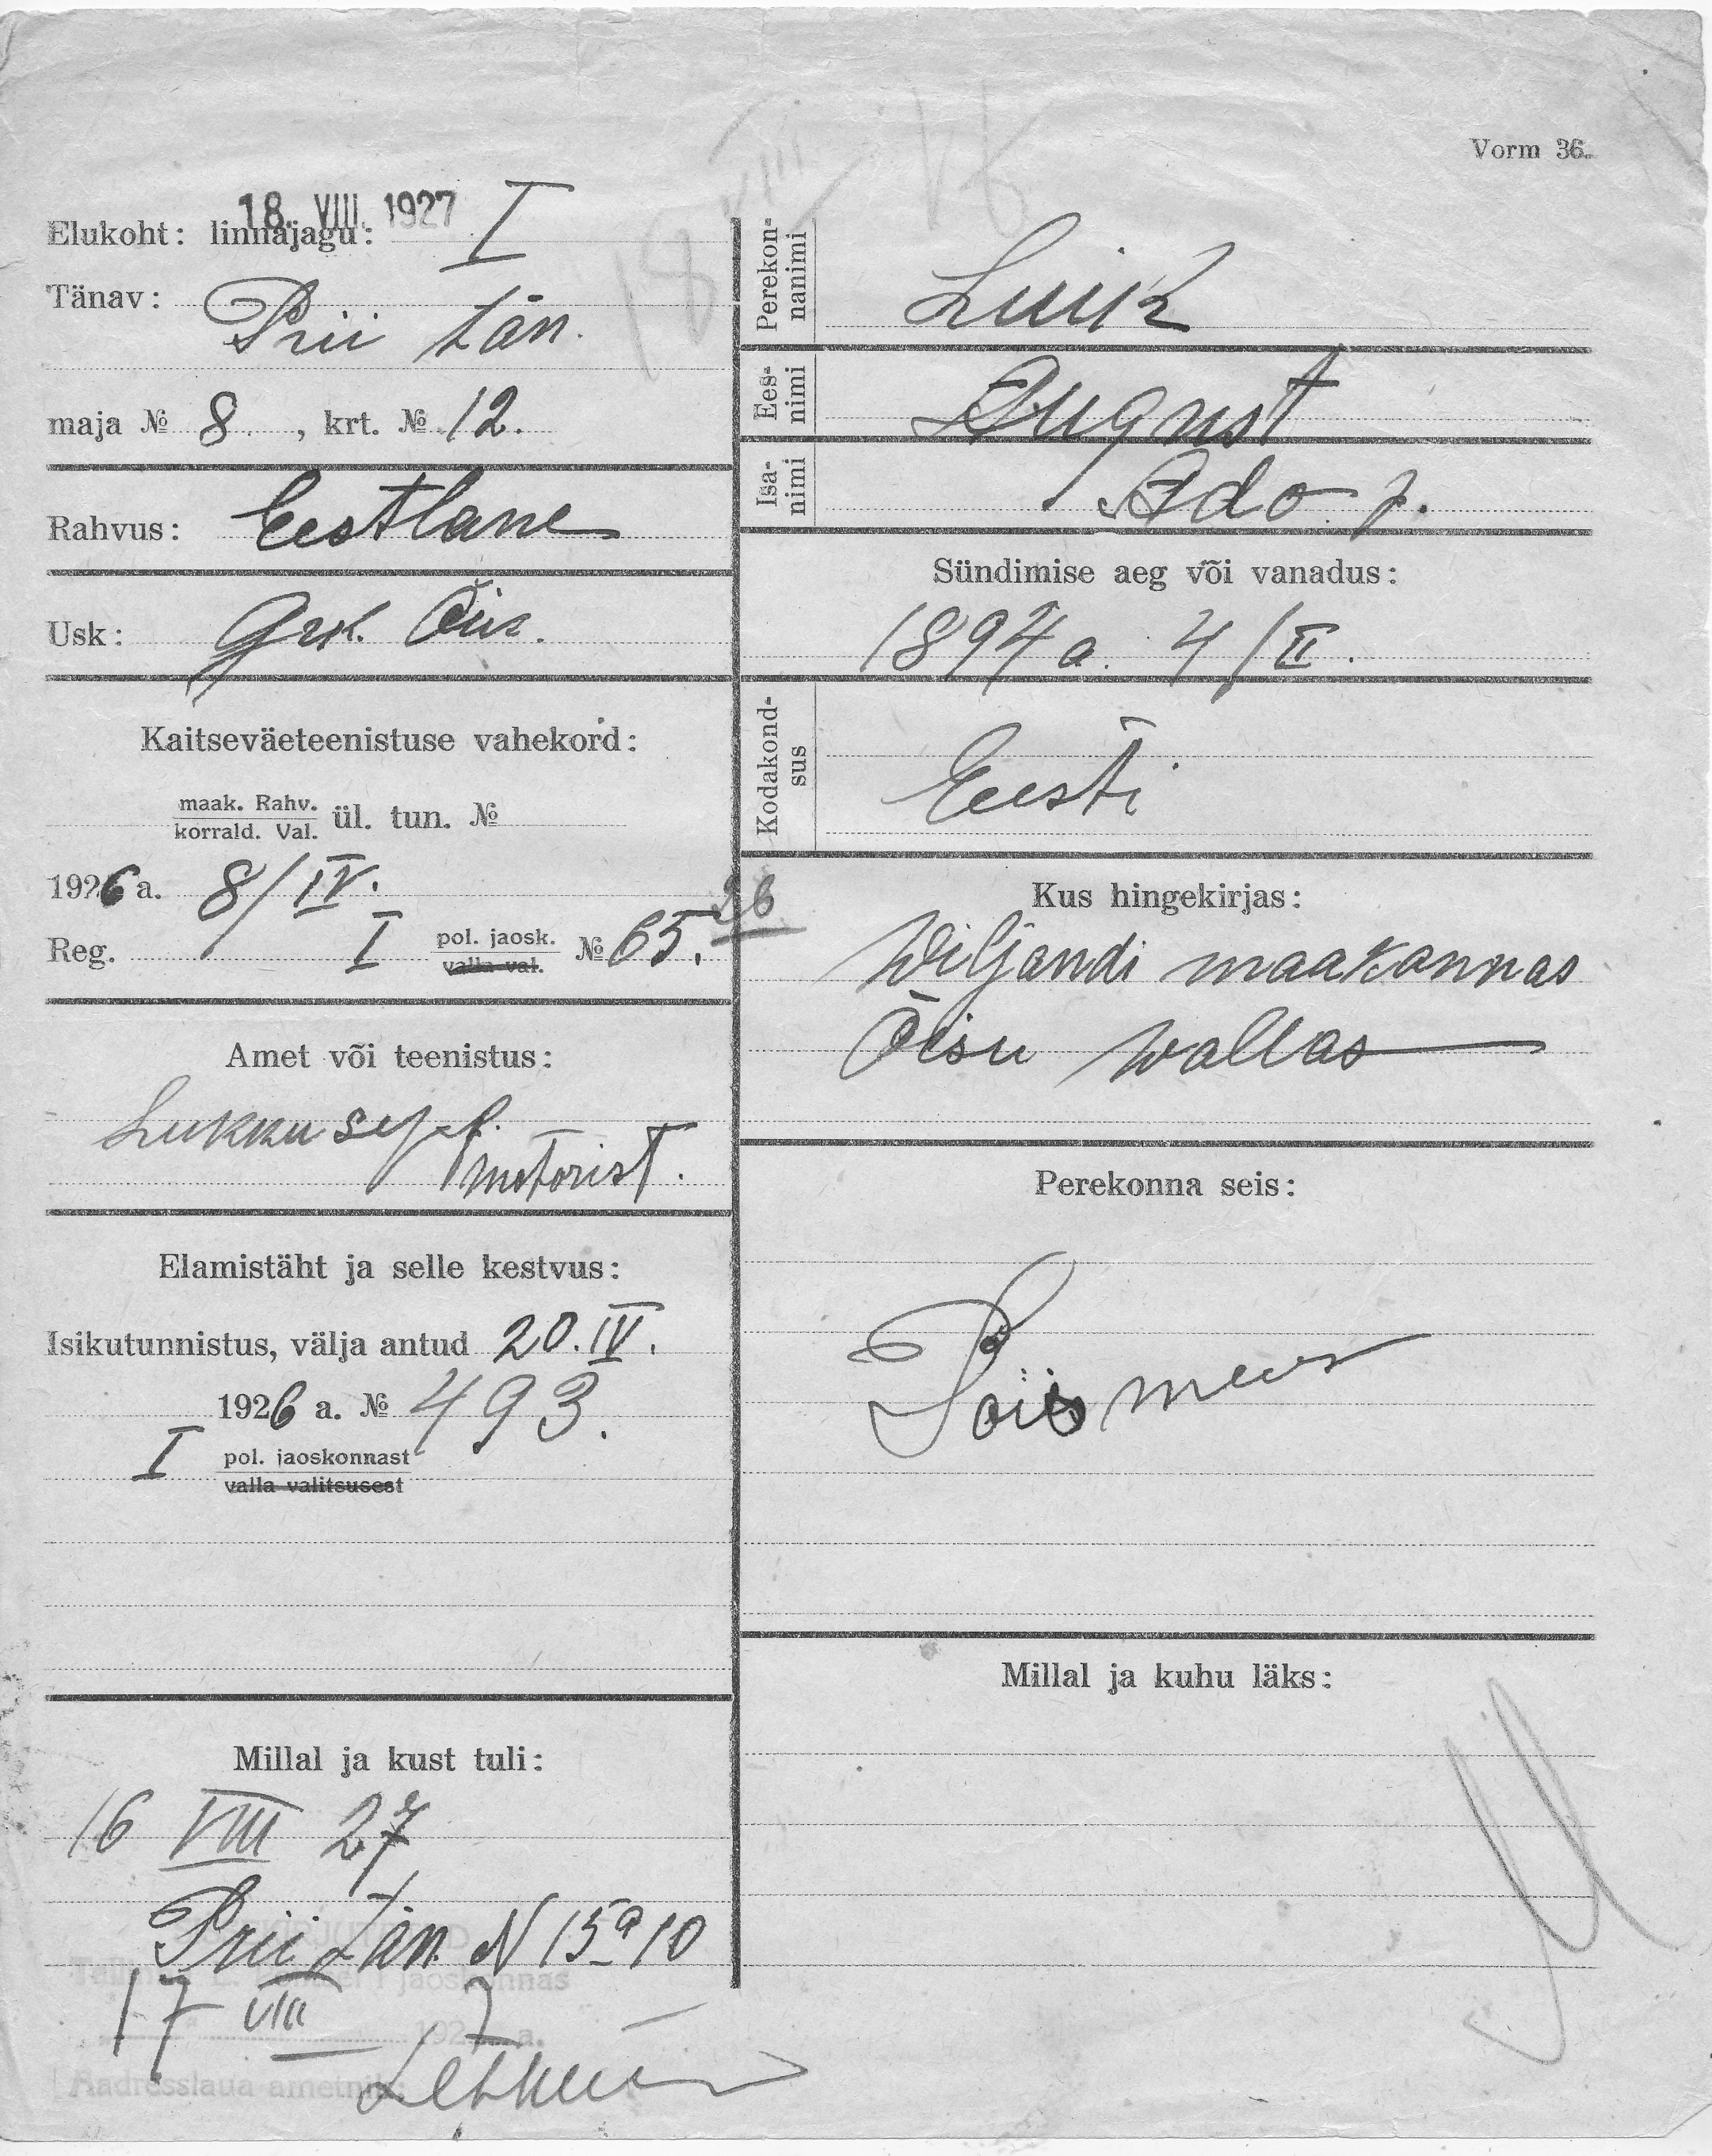 Vorm 36.
18. VIII. 1927
Elukoht: linnajagu: I
Tänav: Prii tän.
maja № 8, krt. № 12.
Rahvus: Eestlane
Usk: Grk. Õiu.
Kaitseväeteenistuse vahekord:
maak. Rahv.
korrald. Val. ül. tun. №
1926 a. 8/IV.
Reg. I pol. jaosk. № 65. 26
valla val.
Amet või teenistus:
Lukku sepp.
motorist.
Elamistäht ja selle kestvus:
Isikutunnistus, välja antud 20. IV.
1926 a. № 493.
I pol. jaoskonnast
valla valitsusest
Millal ja kust tuli:
16 VIII 27
Prii tän. N 15a 10
jaoskonnas
17 VIII 1927 a.
Aadresslaua ametnik:
18 VIII
Perekonnanimi Luik
Eesnimi August
Isanimi Ado p.
Sündimise aeg või vanadus:
1894 a. 4/II.
Kodakondsus Eesti
Kus hingekirjas:
Wiljandi maakonnas
Õisu wallas
Perekonna seis:
Poismees
Millal ja kuhu läks: